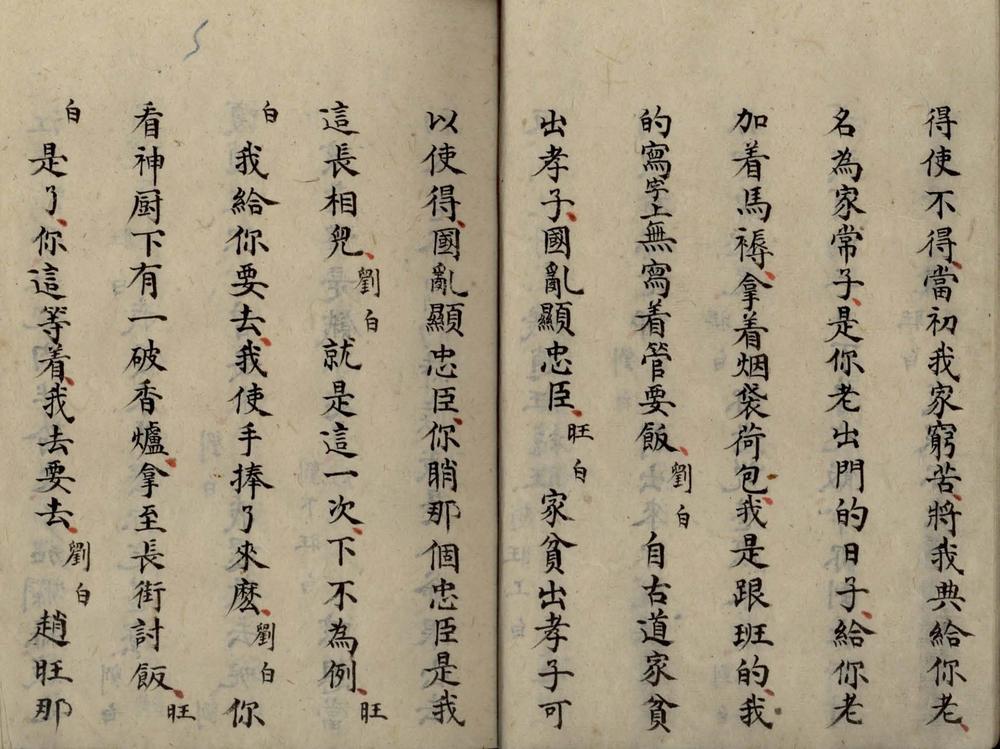 得使不得當初我家窮苦將我典給你老
名為家常子是你老出門的日子給你老
加着馬褥拿着烟袋荷包我是跟班的我
的寫字上無寫着管要飯劉白自古道家貧
出孝子國亂顯忠臣旺白家貧出孝子可
以使得國亂顯忠臣你睄那個忠臣是我
這長相兒劉白就是這一次下不為例旺
白我給你要去我使手捧了來麽劉白你
看神厨下有一破香爐拿至長街討飯旺
白是了你這等着我去要去劉白趙旺那